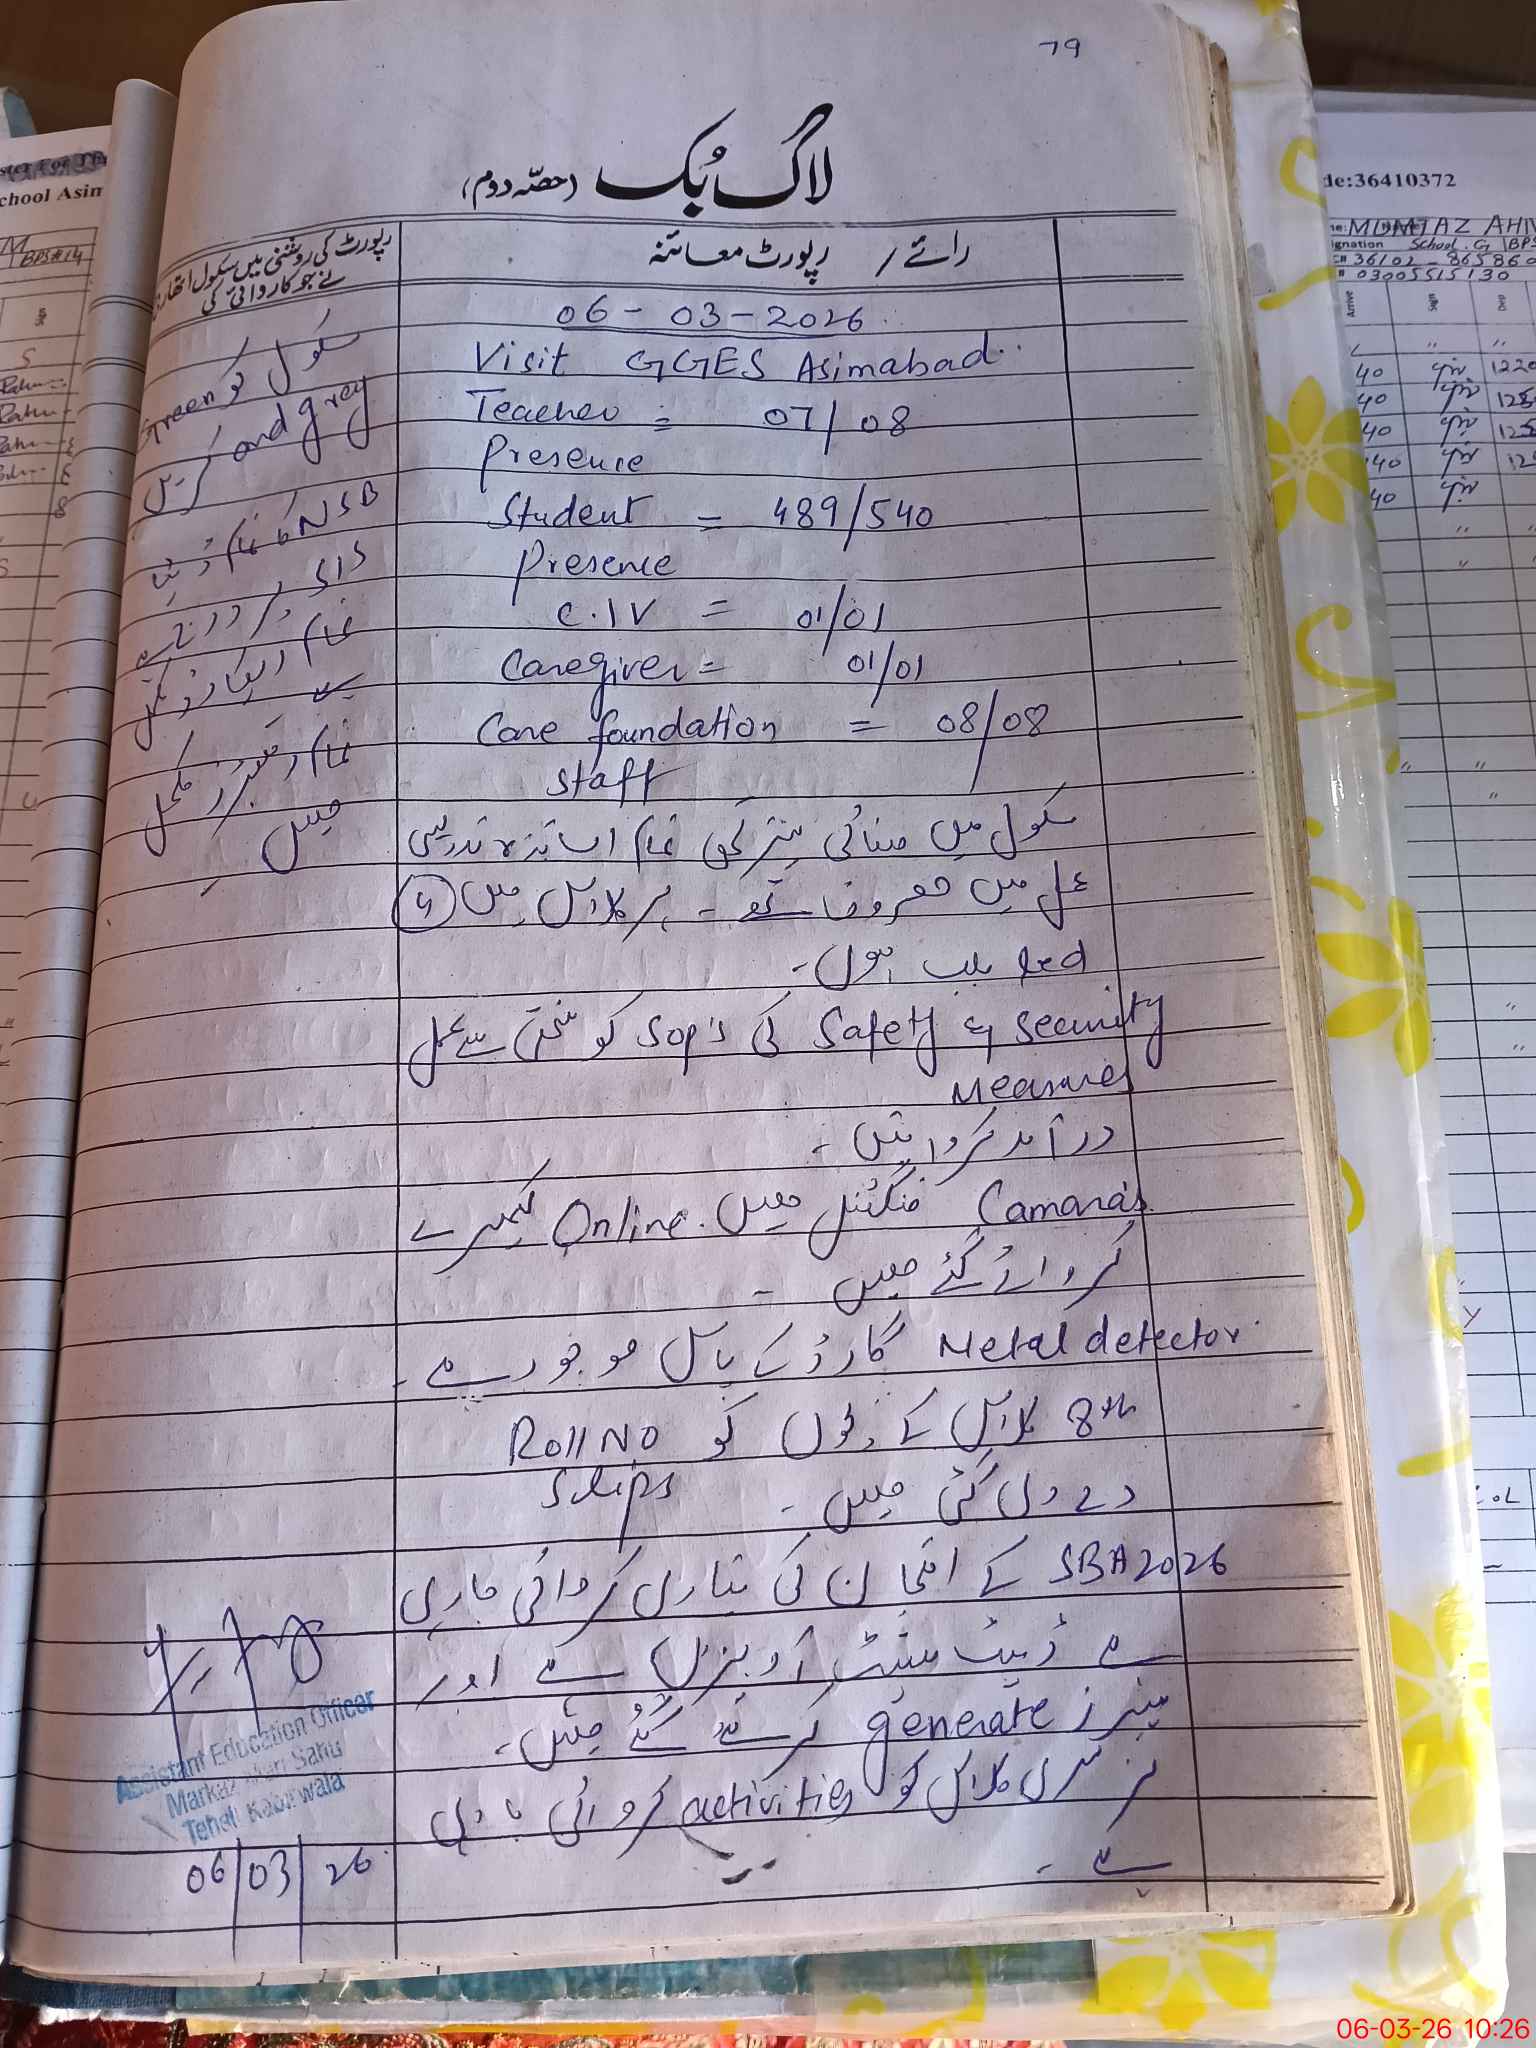 79
لاگ بُک (حصّہ دوم)
رائے / رپورٹ معائنہ
رپورٹ کی روشنی میں سکول اتھارٹی
نے جو کاروائی کی
06-03-2026
Visit GGES Asimabad.
Teacher = 07/08
Presence
Student = 489/540
Presence
C.IV = 01/01
Caregiver = 01/01
Care foundation = 08/08
staff
سکول میں صفائی بہتر تھی تمام اساتذہ تدریسی
عمل میں مصروف تھے۔ ہر کلاس میں
led بلب ہوں۔
Safety & Security کی Sop's کو سختی سے عمل
Measures
درآمد کروائیں۔
Camara's فنکشنل ہیں۔ Online کیمرے
کروائے گئے ہیں۔
Metal detector گارڈ کے پاس موجود ہے۔
8th کلاس کے بچوں کو Roll NO
Slips دے دی گئی ہیں۔
SBA2026 کے امتحان کی تیاری کروائی جاری
ہے ڈیٹ شیٹ آویزاں ہے اور
پیپرز generate کرلئے گئے ہیں۔
نرسری کلاس کو activities کروائی جا رہی
ہے۔
سکول کو Green
and grey کریں
NSB کا تمام
تمام ریکارڈ مکمل
ہے
تمام رجسٹرز مکمل
ہیں
Assistant Education Officer
Markaz Sahu
Tehsil Kabirwala
06/03/26
School Asim
BPS#14
de:36410372
MUMTAZ AHM
ignation School.G BPS
36102-865860
03005515130
Arrive
Sign
Dep
40
40
40
40
40
06-03-26 10:26